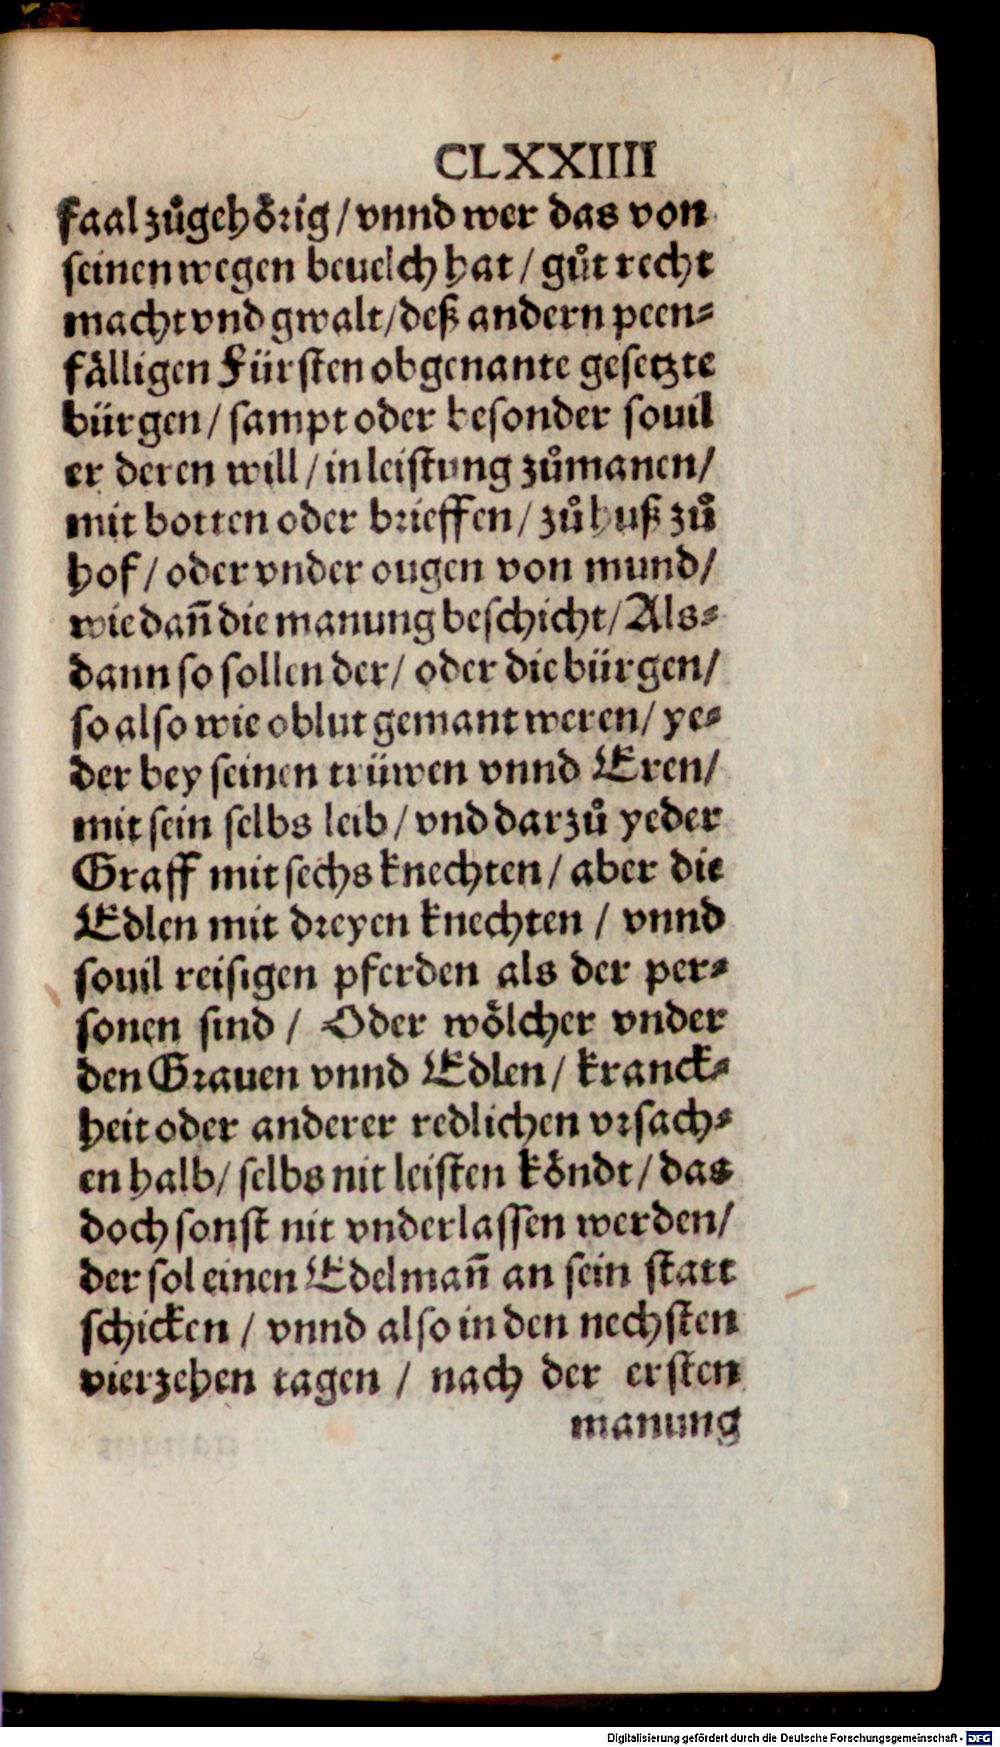 CLXXIIII
faal zůgehoͤrig / vnnd wer das von
seinen wegen beuelch hat / gůt recht
macht vnd gwalt / deß andern peen⸗
faͤlligen Fürsten obgenante gesetzte
bürgen / sampt oder besonder souil
er deren will / in leistung zůmanen /
mit botten oder brieffen / zů huß zů
hof / oder vnder ougen von mund /
wie dañ die manung beschicht / Als⸗
dann so sollen der / oder die bürgen /
so also wie oblut gemant weren / ye⸗
der bey seinen trüwen vnnd Eren /
mit sein selbs leib / vnd darzů yeder
Graff mit sechs knechten / aber die
Edlen mit dreyen knechten / vnnd
souil reisigen pferden als der per⸗
sonen sind / Oder woͤlcher vnder
den Grauen vnnd Edlen / kranck⸗
heit oder anderer redlichen vrsach⸗
en halb / selbs nit leisten koͤndt / das
doch sonst nit vnderlassen werden /
der sol einen Edelmañ an sein statt
schicken / vnnd also in den nechsten
vierzehen tagen / nach der ersten
manung
Digitalisierung gefördert durch die Deutsche Forschungsgemeinschaft - DFG